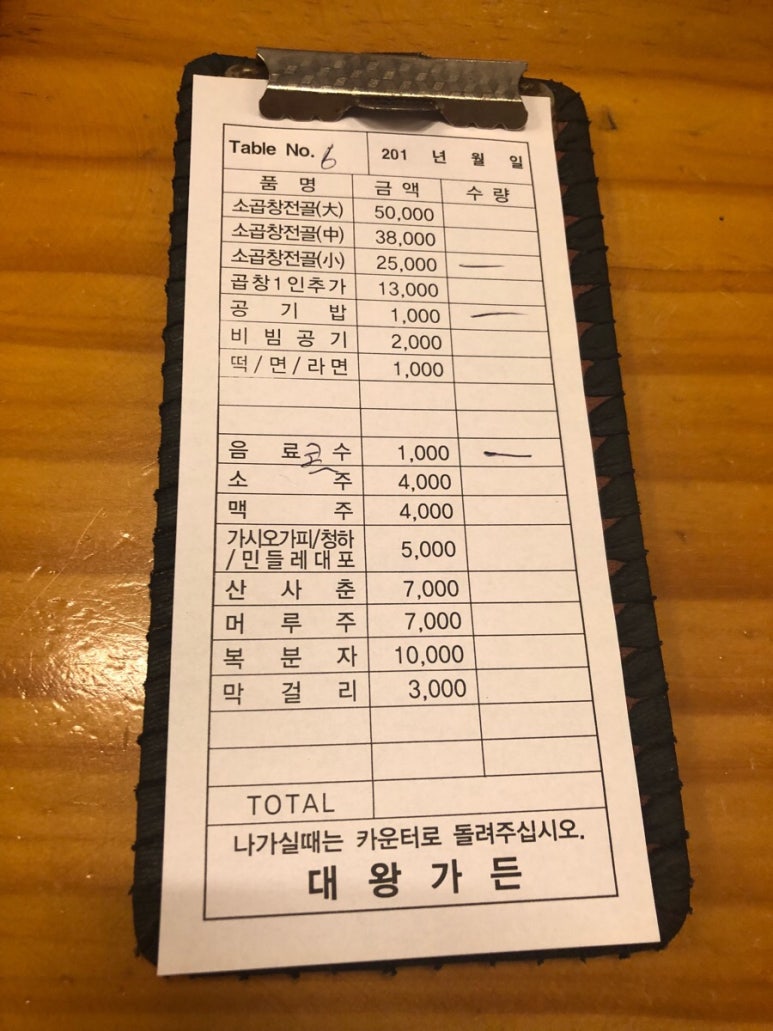 Table No. 6 201 년 월 일
품 명 금 액 수 량
소곱창전골(大) 50,000
소곱창전골(中) 38,000
소곱창전골(小) 25,000 —
곱창1인추가 13,000
공 기 밥 1,000 —
비 빔 공 기 2,000
떡/면/라면 1,000
음 료 수 1,000 —
소 주 4,000
맥 주 4,000
가시오가피/청하
/민들레대포 5,000
산 사 춘 7,000
머 루 주 7,000
복 분 자 10,000
막 걸 리 3,000
TOTAL
나가실때는 카운터로 돌려주십시오.
대 왕 가 든